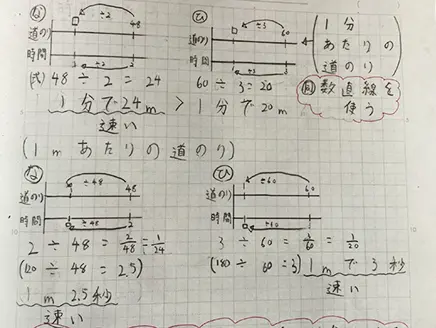 な
÷2
□ 48
道のり
時間
1 2
÷2
(式) 48 ÷ 2 = 24
1分で24m >
速い
ひ
÷3
□ 60
道のり
時間
1 3
÷3
60 ÷ 3 = 20
1分で20m
(1分
あたりの
道のり)
数直線を
使う
(1mあたりの道のり)
な
÷48
1 48
道のり
時間
÷48
□ 2
2 ÷ 48 = 2/48 = 1/24
(120 ÷ 48 = 2.5)
1m 2.5秒
速い
ひ
÷60
1 60
道のり
時間
÷60
□ 3
3 ÷ 60 = 3/60 = 1/20
(180 ÷ 60 = 3) 1mで3秒
速い